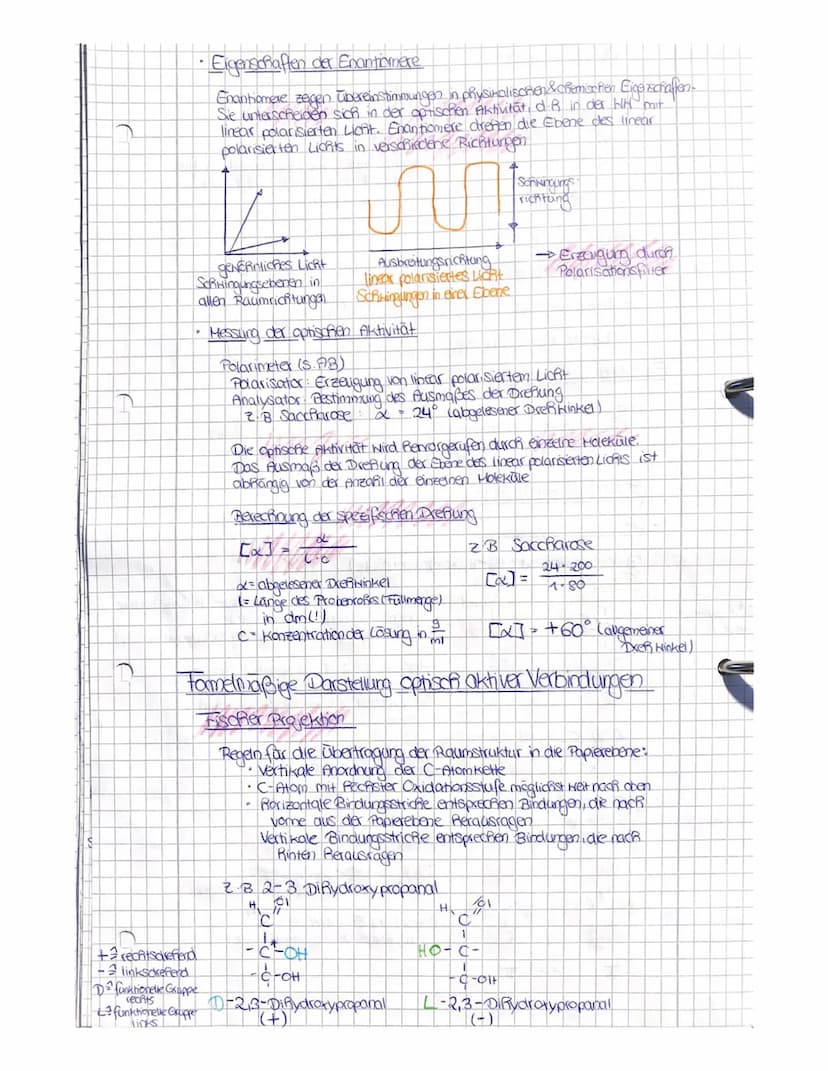 · Eigenschaften der Enantiomere
Enantiomere zeigen Übereinstimmungen in physikalischen & chemischen Eigenschaften.
Sie unterscheiden sich in der optischen Aktivität, d.h. in der WW mit
linear polarisierten Licht. Enantiomere drehen die Ebene des linear
polarisierten Lichts in verschiedene Richtungen
Schwingungs-
richtung
gewöhnliches Licht
Schwingungsebenen in
allen Raumrichtungen
Ausbreitungsrichtung
linear polarisiertes Licht
Schwingungen in einer Ebene
→ Erzeugung durch
Polarisationsfilter
· Messung der optischen Aktivität
Polarimeter (s. AB)
Polarisator: Erzeugung von linear polarisiertem Licht
Analysator: Bestimmung des Ausmaßes der Drehung
z.B Saccharose: α = 24° (abgelesener Drehwinkel)
Die optische Aktivität wird hervorgerufen durch einzelne Moleküle.
Das Ausmaß der Drehung der Ebene des linear polarisierten Lichts ist
abhängig von der Anzahl der einzelnen Moleküle
Berechnung der spezifischen Drehung
[α] = α / l·c
z B Saccharose
[α] = 24·200 / 1·80
α = abgelesener Drehwinkel
l = Länge des Probenrohrs (Füllmenge)
in dm(!)
c = Konzentration der Lösung in g/ml
[α] = +60° (allgemeiner
Drehwinkel)
Formelmäßige Darstellung optisch aktiver Verbindungen
Fischer Projektion
Regeln für die Übertragung der Raumstruktur in die Papierebene:
· Vertikale Anordnung der C-Atomkette
· C-Atom mit höchster Oxidationsstufe möglichst weit nach oben
· horizontale Bindungsstriche entsprechen Bindungen, die nach
vorne aus der Papierebene herausragen
Vertikale Bindungsstriche entsprechen Bindungen, die nach
hinten herausragen
z B 2-3 Dihydroxypropanal
H O
C
- C* - OH
- C - OH
D-2,3-Dihydroxypropanal
(+)
H O
C
HO - C -
- C - OH
L-2,3-Dihydroxypropanal
(-)
+ ≙ rechtsdrehend
- ≙ linksdrehend
D ≙ funktionelle Gruppe
rechts
L ≙ funktionelle Gruppe
links